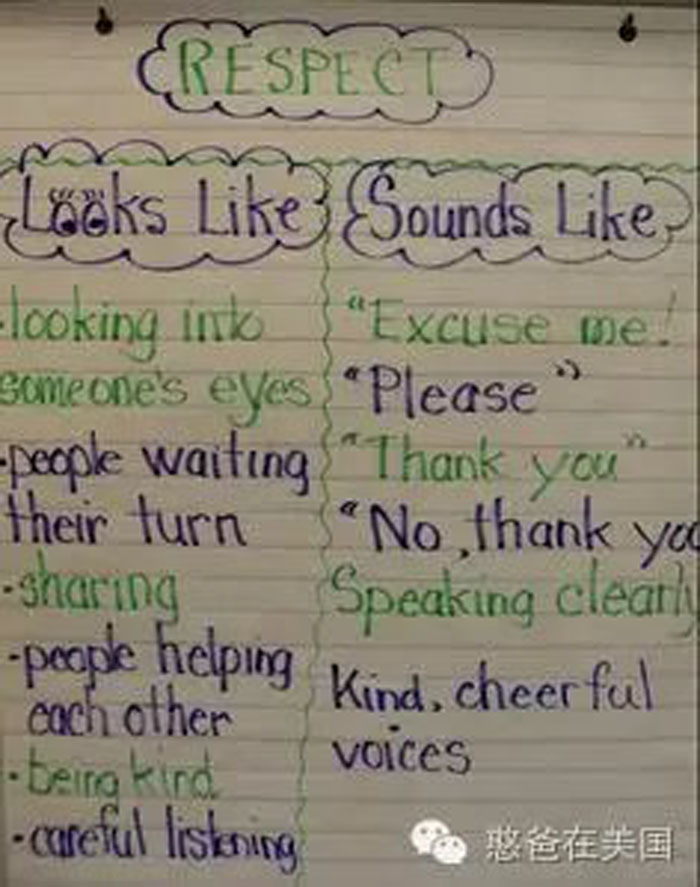 RESPECT
Looks Like
·looking into
someone's eyes
·people waiting
their turn
·sharing
·people helping
each other
·being kind
·careful listening
Sounds Like
"Excuse me!
"Please"
"Thank you"
"No, thank yo
Speaking clearly
Kind, cheerful
voices
憨爸在美国